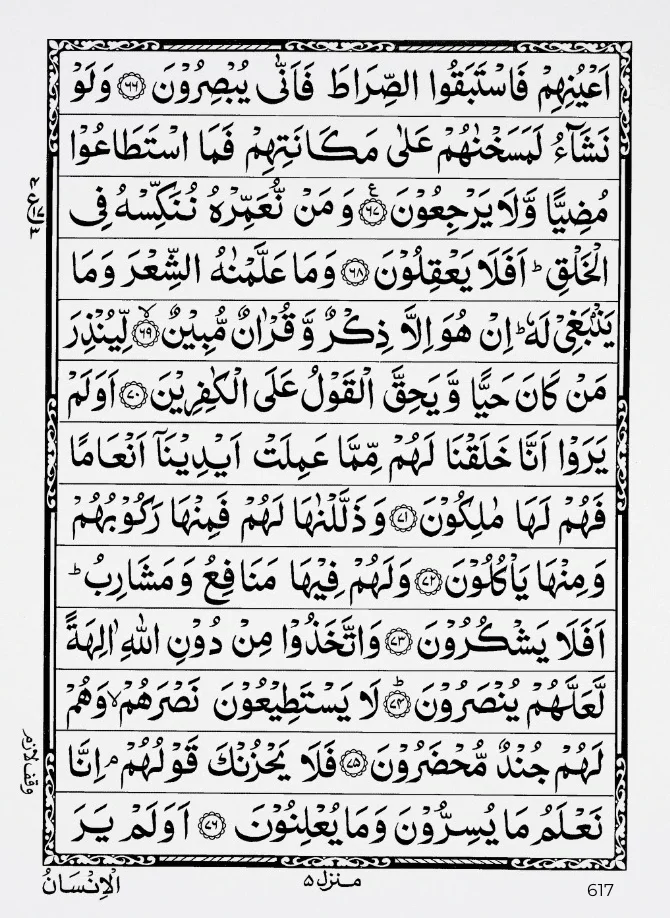 اَعْيُنِهِمْ فَاسْتَبَقُوا الصِّرَاطَ فَاَنّٰى يُبْصِرُوْنَ ۝۶۶ وَلَوْ
نَشَآءُ لَمَسَخْنٰهُمْ عَلٰى مَكَانَتِهِمْ فَمَا اسْتَطَاعُوْا
مُضِيًّا وَّلَا يَرْجِعُوْنَ ۝۶۷ ع وَمَنْ نُّعَمِّرْهُ نُنَكِّسْهُ فِى
الْخَلْقِ ؕ اَفَلَا يَعْقِلُوْنَ ۝۶۸ وَمَا عَلَّمْنٰهُ الشِّعْرَ وَمَا
يَنْۢبَغِىْ لَهٗ ؕ اِنْ هُوَ اِلَّا ذِكْرٌ وَّ قُرْاٰنٌ مُّبِيْنٌ ۝۶۹ ۙ لِّيُنْذِرَ
مَنْ كَانَ حَيًّا وَّ يَحِقَّ الْقَوْلُ عَلَى الْكٰفِرِيْنَ ۝۷۰ اَوَلَمْ
يَرَوْا اَنَّا خَلَقْنَا لَهُمْ مِّمَّا عَمِلَتْ اَيْدِيْنَآ اَنْعَامًا
فَهُمْ لَهَا مٰلِكُوْنَ ۝۷۱ وَ ذَلَّلْنٰهَا لَهُمْ فَمِنْهَا رَكُوْبُهُمْ
وَمِنْهَا يَاْكُلُوْنَ ۝۷۲ وَلَهُمْ فِيْهَا مَنَافِعُ وَمَشَارِبُ ؕ
اَفَلَا يَشْكُرُوْنَ ۝۷۳ وَاتَّخَذُوْا مِنْ دُوْنِ اللّٰهِ اٰلِهَةً
لَّعَلَّهُمْ يُنْصَرُوْنَ ۝۷۴ ؕ لَا يَسْتَطِيْعُوْنَ نَصْرَهُمْ ۙ وَهُمْ
لَهُمْ جُنْدٌ مُّحْضَرُوْنَ ۝۷۵ فَلَا يَحْزُنْكَ قَوْلُهُمْ ۘ اِنَّا
نَعْلَمُ مَا يُسِرُّوْنَ وَمَا يُعْلِنُوْنَ ۝۷۶ اَوَلَمْ يَرَ
۴
ع ۱۷
۳
وقف لازم
الْاِنْسَانُ
منزل ۵
617